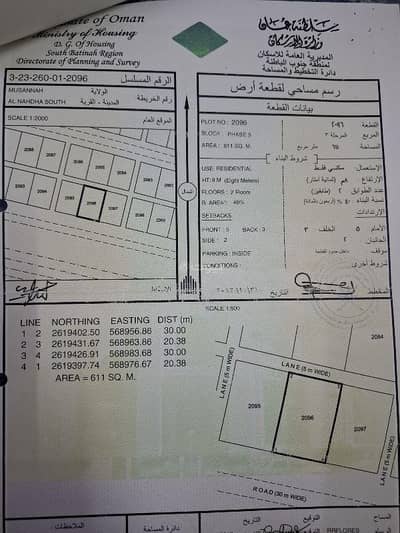 ate of Oman
Ministry of Housing
D. G. Of Housing
South Batinah Region
Directorate of Planning and Survey
سلطنة عمان
وزارة الإسكان
المديرية العامة للإسكان
بمنطقة جنوب الباطنة
دائرة التخطيط والمساحة
3-23-260-01-2096
الرقم المسلسل
MUSANNAH
الولاية
AL NAHDHA SOUTH
المدينة - القرية
رقم الخريطة
SCALE 1:2000
الموقع العام
رسم مساحي لقطعة أرض
بيانات القطعة
PLOT NO : 2096
القطعة
BLOCK : PHASE 3
المربع
المرحلة ٣
AREA : 611 SQ. M.
متر مربع
شروط البناء
USE: RESIDENTIAL
الإستعمال: سكني فقط
HT: 8 M (Eight Meters)
الإرتفاع
FLOORS : 2 Floor
عدد الطوابق ٢ (طابقين)
B. AREA: 40%
نسبة البناء
SETBACKS
الإرتدادات
FRONT : 5 BACK : 3
الأمام ٥ الخلف ٣
SIDE : 2
الجانبان ٢
PARKING : INSIDE
موقف
CONDITIONS :
شروط أخرى
الشمال
التاريخ
المخطط
LINE NORTHING EASTING DIST (m)
1 2 2619402.50 568956.86 30.00
2 3 2619431.67 568963.86 20.38
3 4 2619426.91 568983.68 30.00
4 1 2619397.74 568976.67 20.38
AREA = 611 SQ. M.
SCALE 1:500
2094
LANE (5 m WIDE)
LANE (6 m WIDE)
2095
2096
2097
ROAD (30 m WIDE)
الملاحظات:
دائرة المساحة
التاريخ
التوقيع
المساح